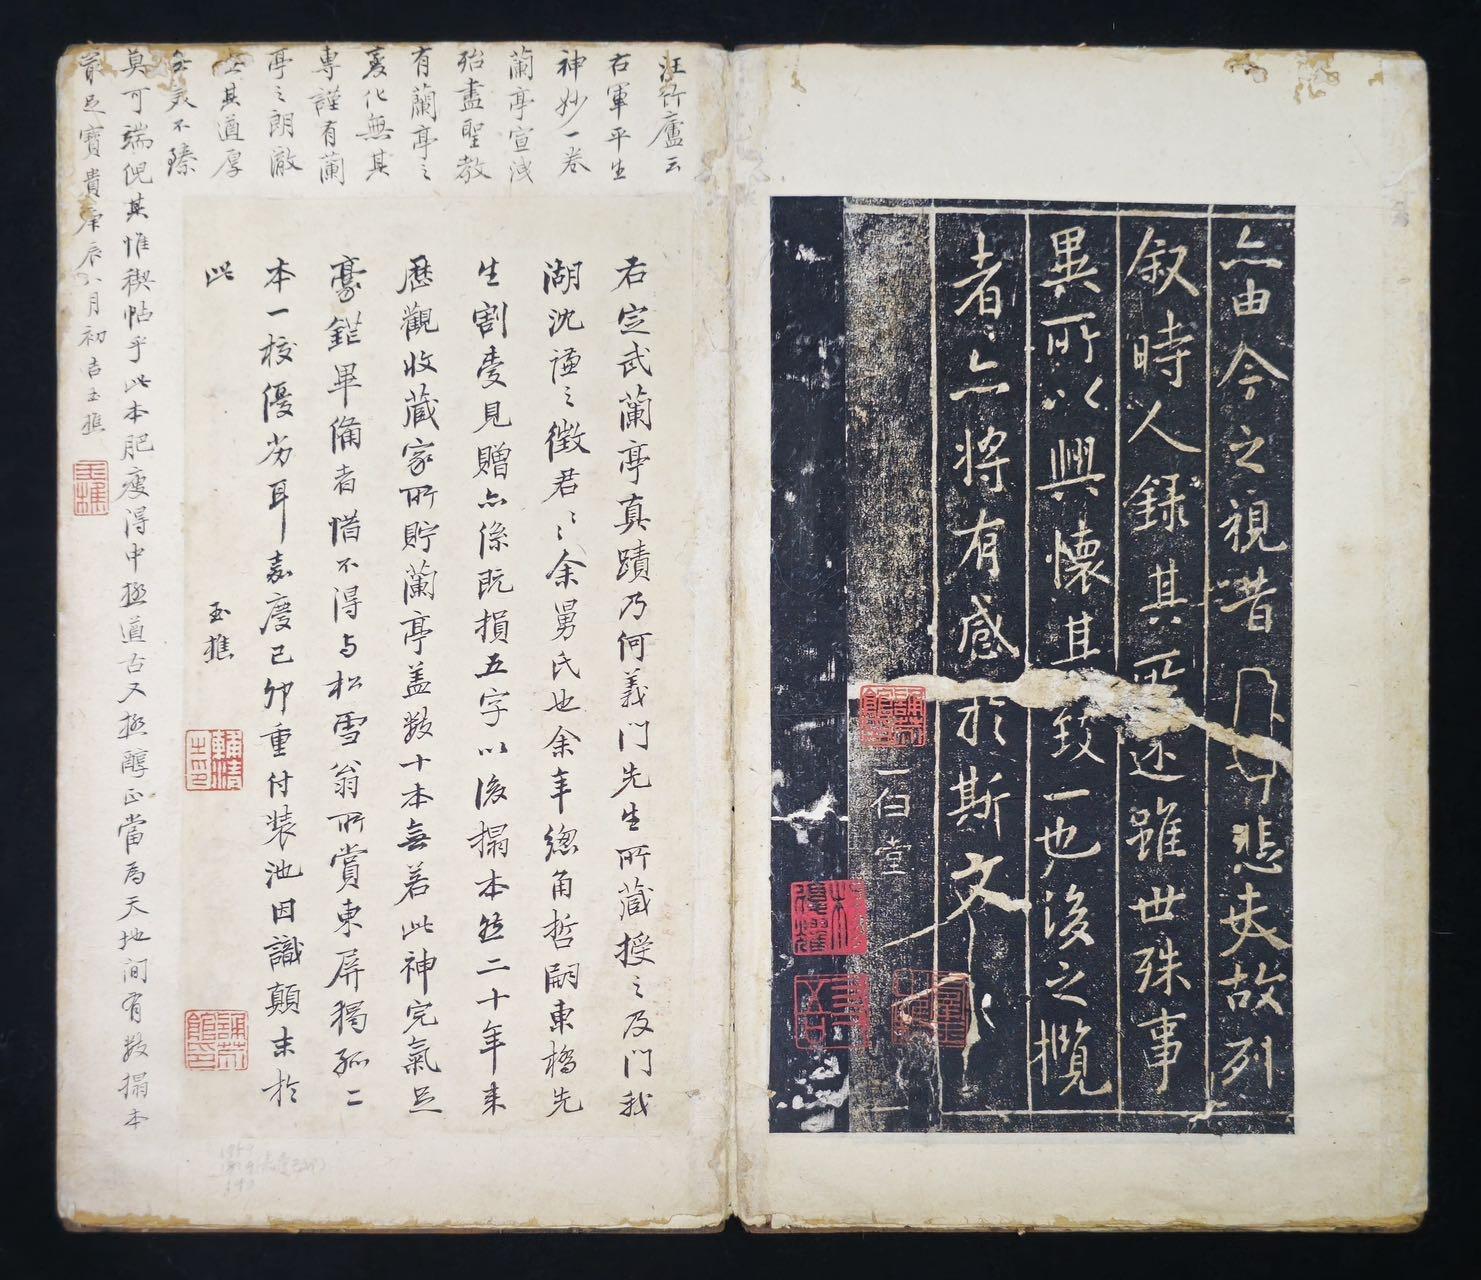 亦由今之視昔悲夫故列
叙時人錄其所述雖世殊事
異所以興懷其致一也後之攬
者亦將有感於斯文
一百堂
汪竹廬云
右軍平生
神妙一卷
蘭亭宣洩
殆盡聖教
有蘭亭之
變化無其
專謹有蘭
亭之朗澈
其遒厚
美不臻
莫可端倪其惟禊帖乎此本肥瘦得中極遒古又極醇正當爲天地間有數搨本
寶貴庚辰八月初吉玉樵
右定武蘭亭真蹟乃何義門先生所藏授之及門我
湖沈謙之徵君〻余舅氏也余年總角哲嗣東橋先
生割愛見贈亦係既損五字以後搨本然二十年來
歷觀收藏家所貯蘭亭蓋數十本無若此神完氣足
豪鋩畢備者惜不得与松雪翁所賞東屏獨孤二
本一校優劣耳嘉慶己卯重付裝池因識顛末於
此
玉樵
玉樵